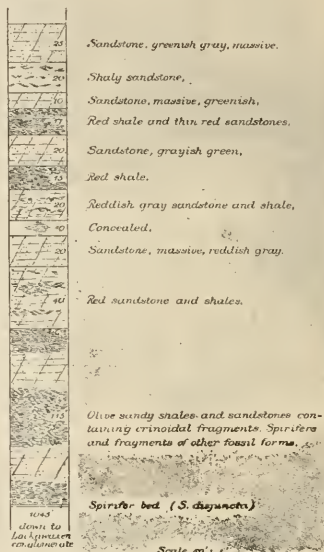 25 Sandstone, greenish gray, massive.
20 Shaly sandstone,
10 Sandstone, massive, greenish,
17 Red shale and thin red sandstones,
20 Sandstone, grayish green,
15 Red shale.
20 Reddish gray sandstone and shale,
10 Concealed,
20 Sandstone, massive, reddish gray.
40 Red sandstone and shales.
115 Olive sandy shales and sandstones con-
taining crinoidal fragments. Spirifers
and fragments of other fossil forms.
Spirifer bed (S. disjuncta)
1045
down to
Lackawaxen
conglomerate
Scale